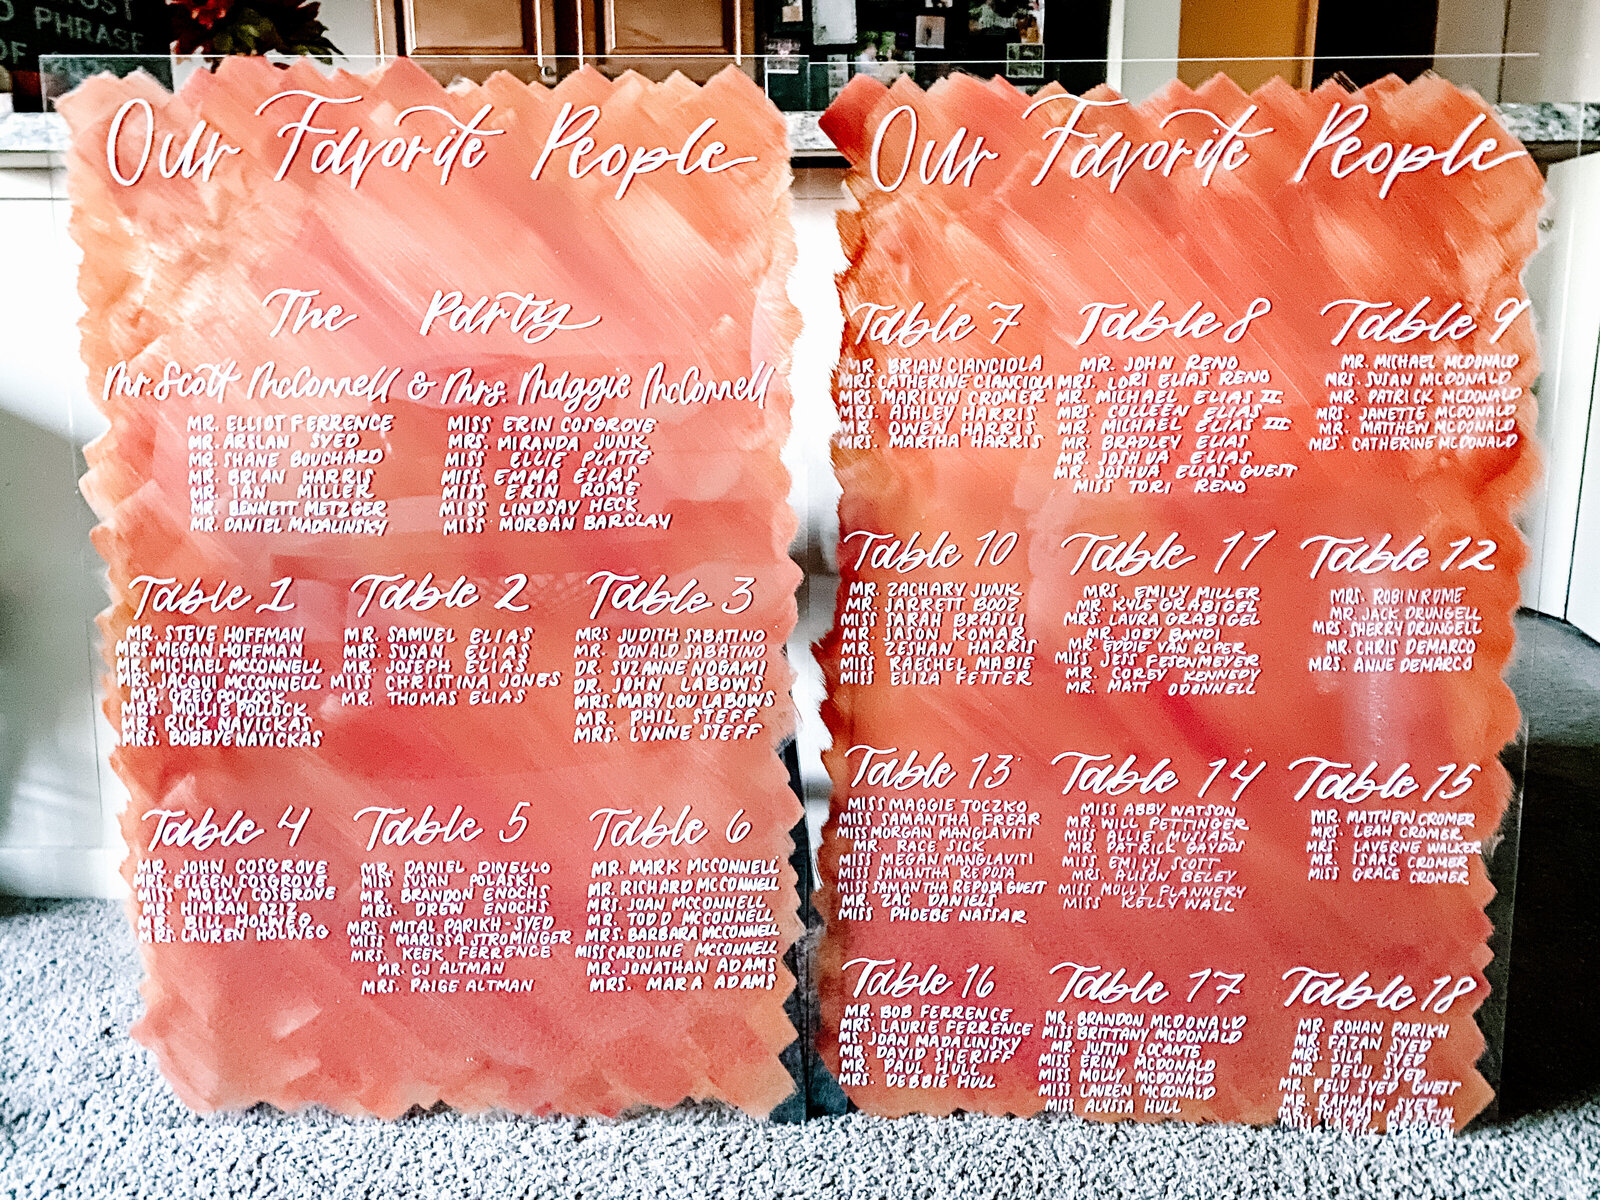 OST
PHRASE
OF
Our Favorite People
The Party
Mr. Scott McConnell & Mrs. Maggie McConnell
MR. ELLIOT FERRENCE
MR. ARSLAN SYED
MR. SHANE BOUCHARD
MR. BRIAN HARRIS
MR. IAN MILLER
MR. BENNETT METZGER
MR. DANIEL MADALINSKY
MISS ERIN COSGROVE
MRS. MIRANDA JUNK
MISS ELLIE PLATTE
MISS EMMA ELIAS
MISS ERIN ROME
MISS LINDSAY HECK
MISS MORGAN BARCLAY
Table 1
MR. STEVE HOFFMAN
MRS. MEGAN HOFFMAN
MR. MICHAEL MCCONNELL
MRS. JACQUI MCCONNELL
MR. GREG POLLOCK
MRS. MOLLIE POLLOCK
MR. RICK NAVICKAS
MRS. BOBBYE NAVICKAS
Table 2
MR. SAMUEL ELIAS
MRS. SUSAN ELIAS
MR. JOSEPH ELIAS
MISS CHRISTINA JONES
MR. THOMAS ELIAS
Table 3
MRS JUDITH SABATINO
MR. DONALD SABATINO
DR. SUZANNE NOGAMI
DR. JOHN LABOWS
MRS. MARY LOU LABOWS
MR. PHIL STEFF
MRS. LYNNE STEFF
Table 4
MR. JOHN COSGROVE
MRS. EILEEN COSGROVE
MISS MOLLY COSGROVE
MR. HIMRAN AZIZ
MR. BILL HOLWEG
MRS. LAUREN HOLWEG
Table 5
MR. DANIEL DINELLO
MISS SUSAN POLASKI
MR. BRANDON ENOCHS
MRS. DREW ENOCHS
MRS. MITAL PARIKH-SYED
MISS MARISSA STROMINGER
MRS. KEEK FERRENCE
MR. CJ ALTMAN
MRS. PAIGE ALTMAN
Table 6
MR. MARK MCCONNELL
MR. RICHARD MCCONNELL
MRS. JOAN MCCONNELL
MR. TODD MCCONNELL
MRS. BARBARA MCCONNELL
MISS CAROLINE MCCONNELL
MR. JONATHAN ADAMS
MRS. MARA ADAMS
Our Favorite People
Table 7
MR. BRIAN CIANCIOLA
MRS. CATHERINE CIANCIOLA
MRS. MARILYN CROMER
MRS. ASHLEY HARRIS
MR. OWEN HARRIS
MRS. MARTHA HARRIS
Table 8
MR. JOHN RENO
MRS. LORI ELIAS RENO
MR. MICHAEL ELIAS II
MRS. COLLEEN ELIAS
MR. MICHAEL ELIAS III
MR. BRADLEY ELIAS
MR. JOSHUA ELIAS
MR. JOSHUA ELIAS GUEST
MISS TORI RENO
Table 9
MR. MICHAEL MCDONALD
MRS. SUSAN MCDONALD
MR. PATRICK MCDONALD
MRS. JANETTE MCDONALD
MR. MATTHEW MCDONALD
MRS. CATHERINE MCDONALD
Table 10
MR. ZACHARY JUNK
MR. JARRETT BOOZ
MISS SARAH BRASILI
MR. JASON KOMAR
MR. ZESHAN HARRIS
MISS RAECHEL MABIE
MISS ELIZA FETTER
Table 11
MRS. EMILY MILLER
MR. KYLE GRABIGEL
MRS. LAURA GRABIGEL
MR. JOBY BANDI
MR. EDDIE VAN RIPER
MISS JESS FESENMEYER
MR. COREY KENNEDY
MR. MATT ODONNELL
Table 12
MRS. ROBIN ROME
MR. JACK DRUNGELL
MRS. SHERRY DRUNGELL
MR. CHRIS DEMARCO
MRS. ANNE DEMARCO
Table 13
MISS MAGGIE TOCZKO
MISS SAMANTHA FREAR
MISS MORGAN MANGLAVITI
MR. RACE SICK
MISS MEGAN MANGLAVITI
MISS SAMANTHA REPOSA
MISS SAMANTHA REPOSA GUEST
MR. ZAC DANIELS
MISS PHOEBE NASSAR
Table 14
MISS ABBY WATSON
MR. WILL PETTINGER
MISS ALLIE MUSIAR
MR. PATRICK GAYDOS
MISS EMILY SCOTT
MRS. ALISON BELEY
MISS MOLLY FLANNERY
MISS KELLY WALL
Table 15
MR. MATTHEW CROMER
MRS. LEAH CROMER
MRS. LAVERNE WALKER
MR. ISAAC CROMER
MISS GRACE CROMER
Table 16
MR. BOB FERRENCE
MRS. LAURIE FERRENCE
MS. JOAN MADALINSKY
MR. DAVID SHERIFF
MR. PAUL HULL
MRS. DEBBIE HULL
Table 17
MR. BRANDON MCDONALD
MISS BRITTANY MCDONALD
MR. JUSTIN LOCANTE
MISS ERIN MCDONALD
MISS MOLLY MCDONALD
MISS LAUREN MCDONALD
MISS ALYSSA HULL
Table 18
MR. ROHAN PARIKH
MR. FAZAN SYED
MRS. SILA SYED
MR. PELU SYED
MR. PELU SYED GUEST
MR. RAHMAN SYED
MR. THOMAS MARTIN
MISS